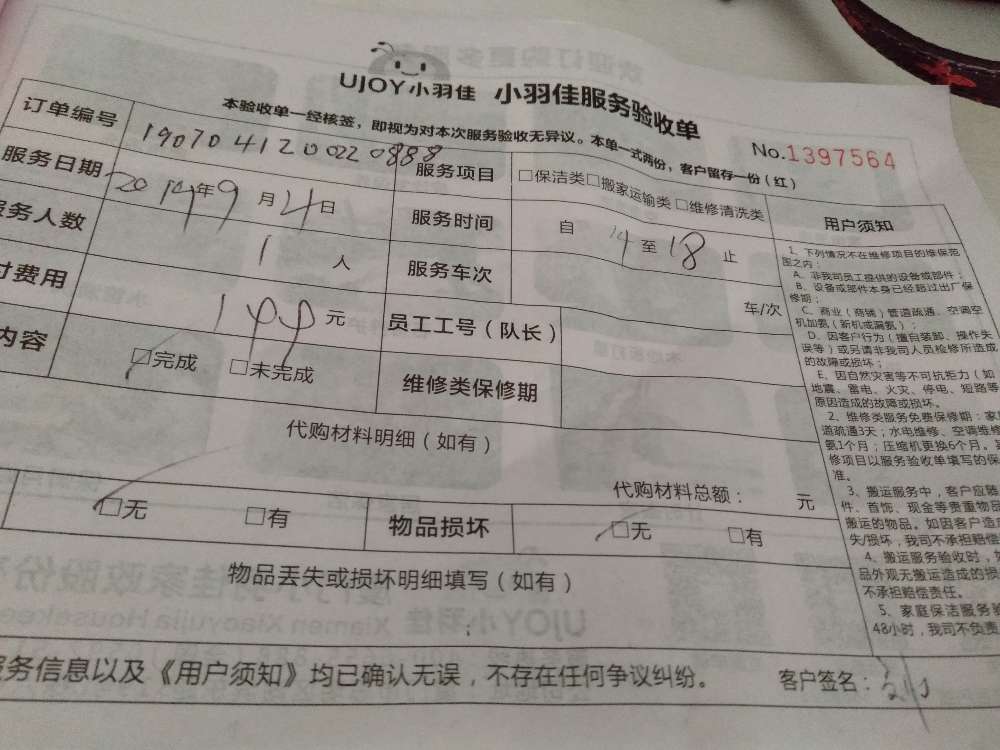 UJOY小羽佳 小羽佳服务验收单
本验收单一经核签，即视为对本次服务验收无异议。本单一式两份，客户留存一份（红）
No.1397564
订单编号 190704120022 0888 服务项目 □保洁类□搬家运输类□维修清洗类 用户须知
服务日期 年9月4日 服务时间 自14至18止
务人数 1人 服务车次 车/次
付费用 元 员工工号（队长）
内容 □完成 □未完成 维修类保修期
代购材料明细（如有）
代购材料总额： 元
□无 □有 物品损坏 □无 □有
物品丢失或损坏明细填写（如有）
务信息以及《用户须知》均已确认无误，不存在任何争议纠纷。 客户签名：
1、下列情况不在维修项目的维保范
围之内：
A、非我司员工提供的设备或部件；
B、设备或部件本身已经超过出厂保
修期；
C、商业（商铺）管道疏通、空调空
机加氨（新机或漏氨）；
D、因客户行为（擅自装卸、操作失
误等）或另请非我司人员检修所造成
的故障或损坏；
E、因自然灾害等不可抗拒力（如
地震、雷电、火灾、停电、短路等
原因造成的故障或损坏。
2、维修类服务免费保修期：家
道疏通3天；水电维修、空调维修
氨1个月；压缩机更换6个月。
修项目以服务验收单填写的保
准。
3、搬运服务中，客户应
件、首饰、现金等贵重物品
搬运的物品。如因客户造
失/损坏，我司不承担赔偿
4、搬运服务验收时，
品外观无搬运造成的损
不承担赔偿责任。
5、家庭保洁服务
48小时，我司不负责